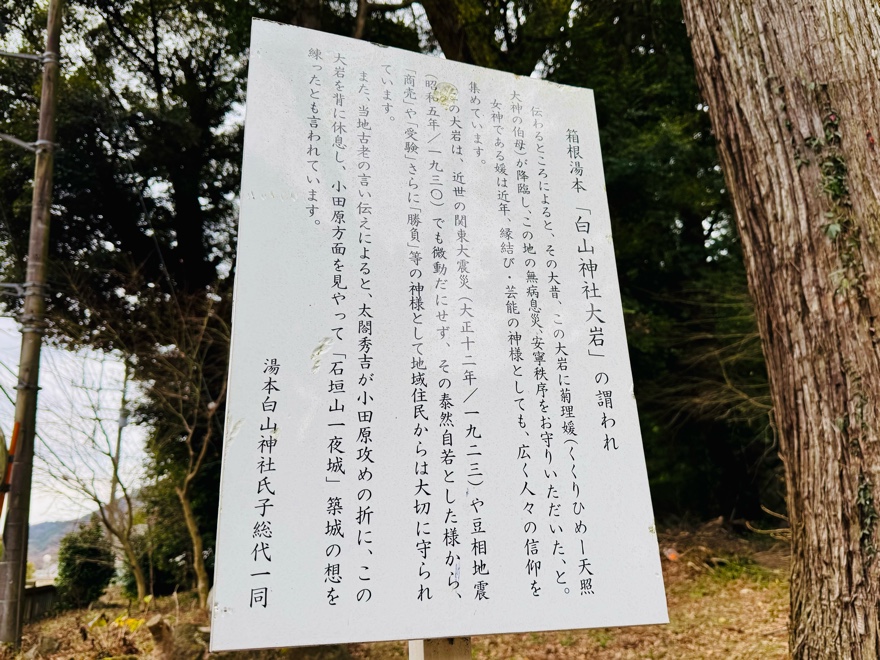 箱根湯本 「白山神社大岩」の謂われ
伝わるところによると、その大昔、この大岩に菊理媛(くくりひめー天照
大神の伯母)が降臨し、この地の無病息災、安寧秩序をお守りいただいた、と。
女神である媛は近年、縁結び・芸能の神様としても、広く人々の信仰を
集めています。
この大岩は、近世の関東大震災(大正十二年/一九二三)や豆相地震
(昭和五年/一九三〇)でも微動だにせず、その泰然自若とした様から、
「商売」や「受験」さらに「勝負」等の神様として地域住民からは大切に守られ
ています。
また、当地古老の言い伝えによると、太閤秀吉が小田原攻めの折に、この
大岩を背に休息し、小田原方面を見やって「石垣山一夜城」築城の想を
練ったとも言われています。
湯本白山神社氏子総代一同